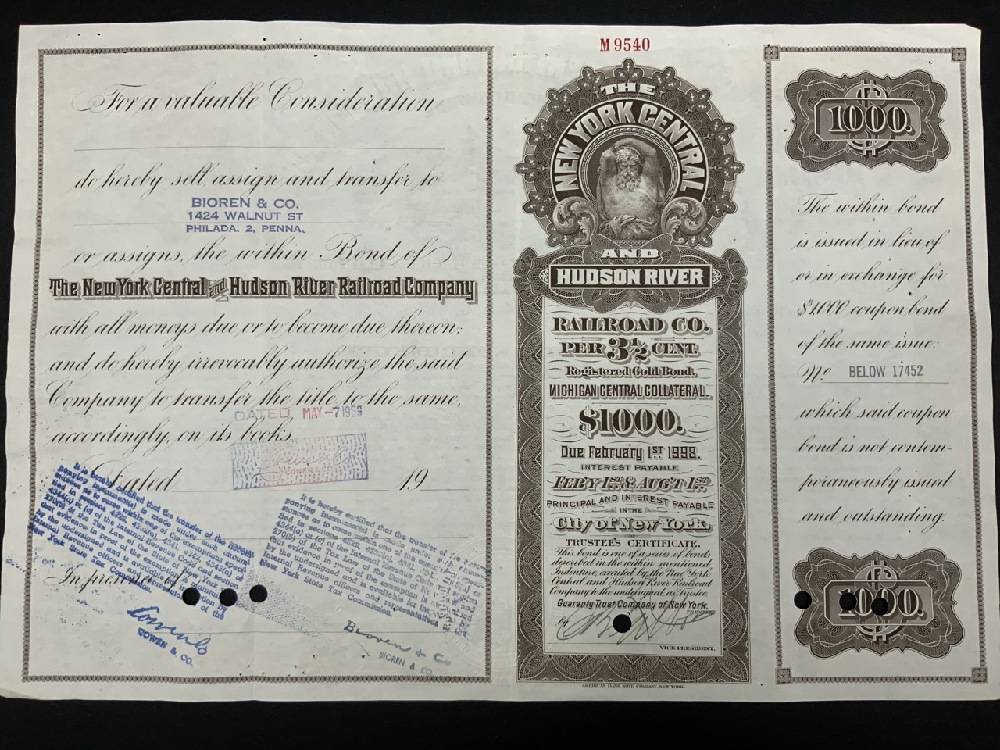 M 9540
For a valuable Consideration
do hereby sell assign and transfer to
BIOREN & CO.
1424 WALNUT ST
PHILADA. 2, PENNA.
or assigns, the within Bond of
The New York Central and Hudson River Railroad Company
with all moneys due or to become due thereon;
and do hereby irrevocably authorize the said
Company to transfer the title to the same,
accordingly, on its books.
DATED MAY -7 1956
Dated 19
In presence of
It is hereby certified that the transfer of the
New York State Tax Commission.
COWEN & CO.
It is hereby certified that the transfer of
New York State Tax Commission
Bioren & Co
THE
NEW YORK CENTRAL
AND
HUDSON RIVER
RAILROAD CO.
PER 3½ CENT.
Registered Gold Bond,
MICHIGAN CENTRAL COLLATERAL.
$1000.
Due February 1ST 1998.
INTEREST PAYABLE
FEBY 1ST & AUGT 1ST
PRINCIPAL AND INTEREST PAYABLE
IN THE
City of New York.
TRUSTEE'S CERTIFICATE.
This bond is one of a series of bonds
described in the within mentioned
Indenture, executed by the New York
Central and Hudson River Railroad
Company to the undersigned as Trustee.
Guaranty Trust Company of New York,
By
VICE PRESIDENT.
1000.
The within bond
is issued in lieu of
or in exchange for
$1000 coupon bond
of the same issue:
No. BELOW 17452
which said coupon
bond is not contem-
poraneously issued
and outstanding.
1000.